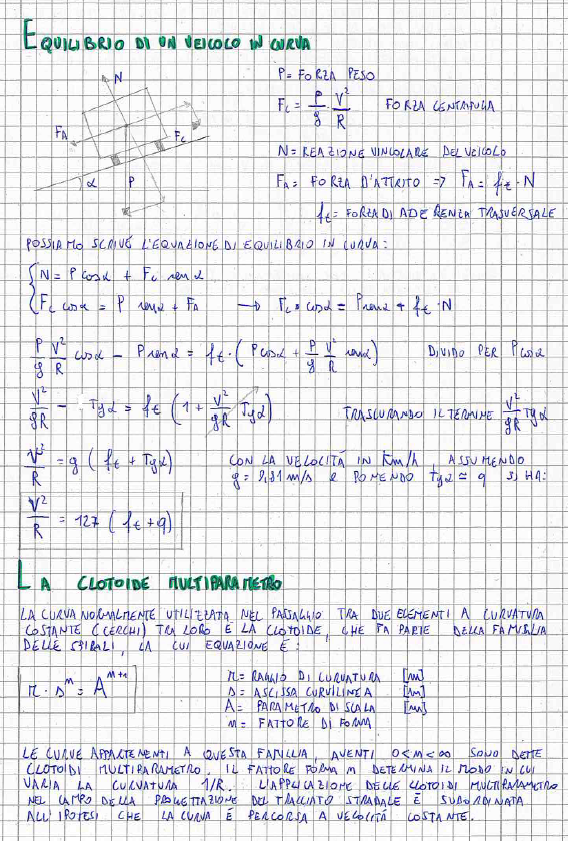 EQUILIBRIO DI UN VEICOLO IN CURVA
N
FA
Fc
α
P
P = FORZA PESO
Fc = P/g · V²/R FORZA CENTRIFUGA
N = REAZIONE VINCOLARE DEL VEICOLO
FA = FORZA D'ATTRITO => FA = ft · N
ft = FORZA DI ADERENZA TRASVERSALE
POSSIAMO SCRIVE L'EQUAZIONE DI EQUILIBRIO IN CURVA:
N = P cosα + Fc senα
Fc cosα = P senα + FA → Fc · cosα = P senα + ft · N
P/g V²/R cosα - P senα = ft · (P cosα + P/g V²/R senα) DIVIDO PER P cosα
V²/gR - Tgα = ft (1 + V²/gR Tgα) TRASCURANDO IL TERMINE V²/gR Tgα
V²/R = g (ft + Tgα) CON LA VELOCITÁ IN Km/h, ASSUMENDO
g = 9,81 m/s E PONENDO Tgα ≃ q SI HA:
V²/R = 127 (ft + q)
LA CLOTOIDE MULTIPARAMETRO
LA CURVA NORMALMENTE UTILIZZATA NEL PASSAGGIO TRA DUE ELEMENTI A CURVATURA
COSTANTE (CERCHI) TRA LORO È LA CLOTOIDE, CHE FA PARTE DELLA FAMIGLIA
DELLE SPIRALI, LA CUI EQUAZIONE È:
r · sⁿ = Aⁿ⁺¹
r = RAGGIO DI CURVATURA [m]
s = ASCISSA CURVILINEA [m]
A = PARAMETRO DI SCALA [m]
n = FATTORE DI FORMA
LE CURVE APPARTENENTI A QUESTA FAMIGLIA, AVENTI 0<n<∞ SONO DETTE
CLOTOIDI MULTIPARAMETRO. IL FATTORE FORMA n DETERMINA IL MODO IN CUI
VARIA LA CURVATURA 1/R. L'APPLICAZIONE DELLE CLOTOIDI MULTIPARAMETRO
NEL CAMPO DELLA PROGETTAZIONE DEL TRACCIATO STRADALE È SUBORDINATA
ALL'IPOTESI CHE LA CURVA È PERCORSA A VELOCITÁ COSTANTE.